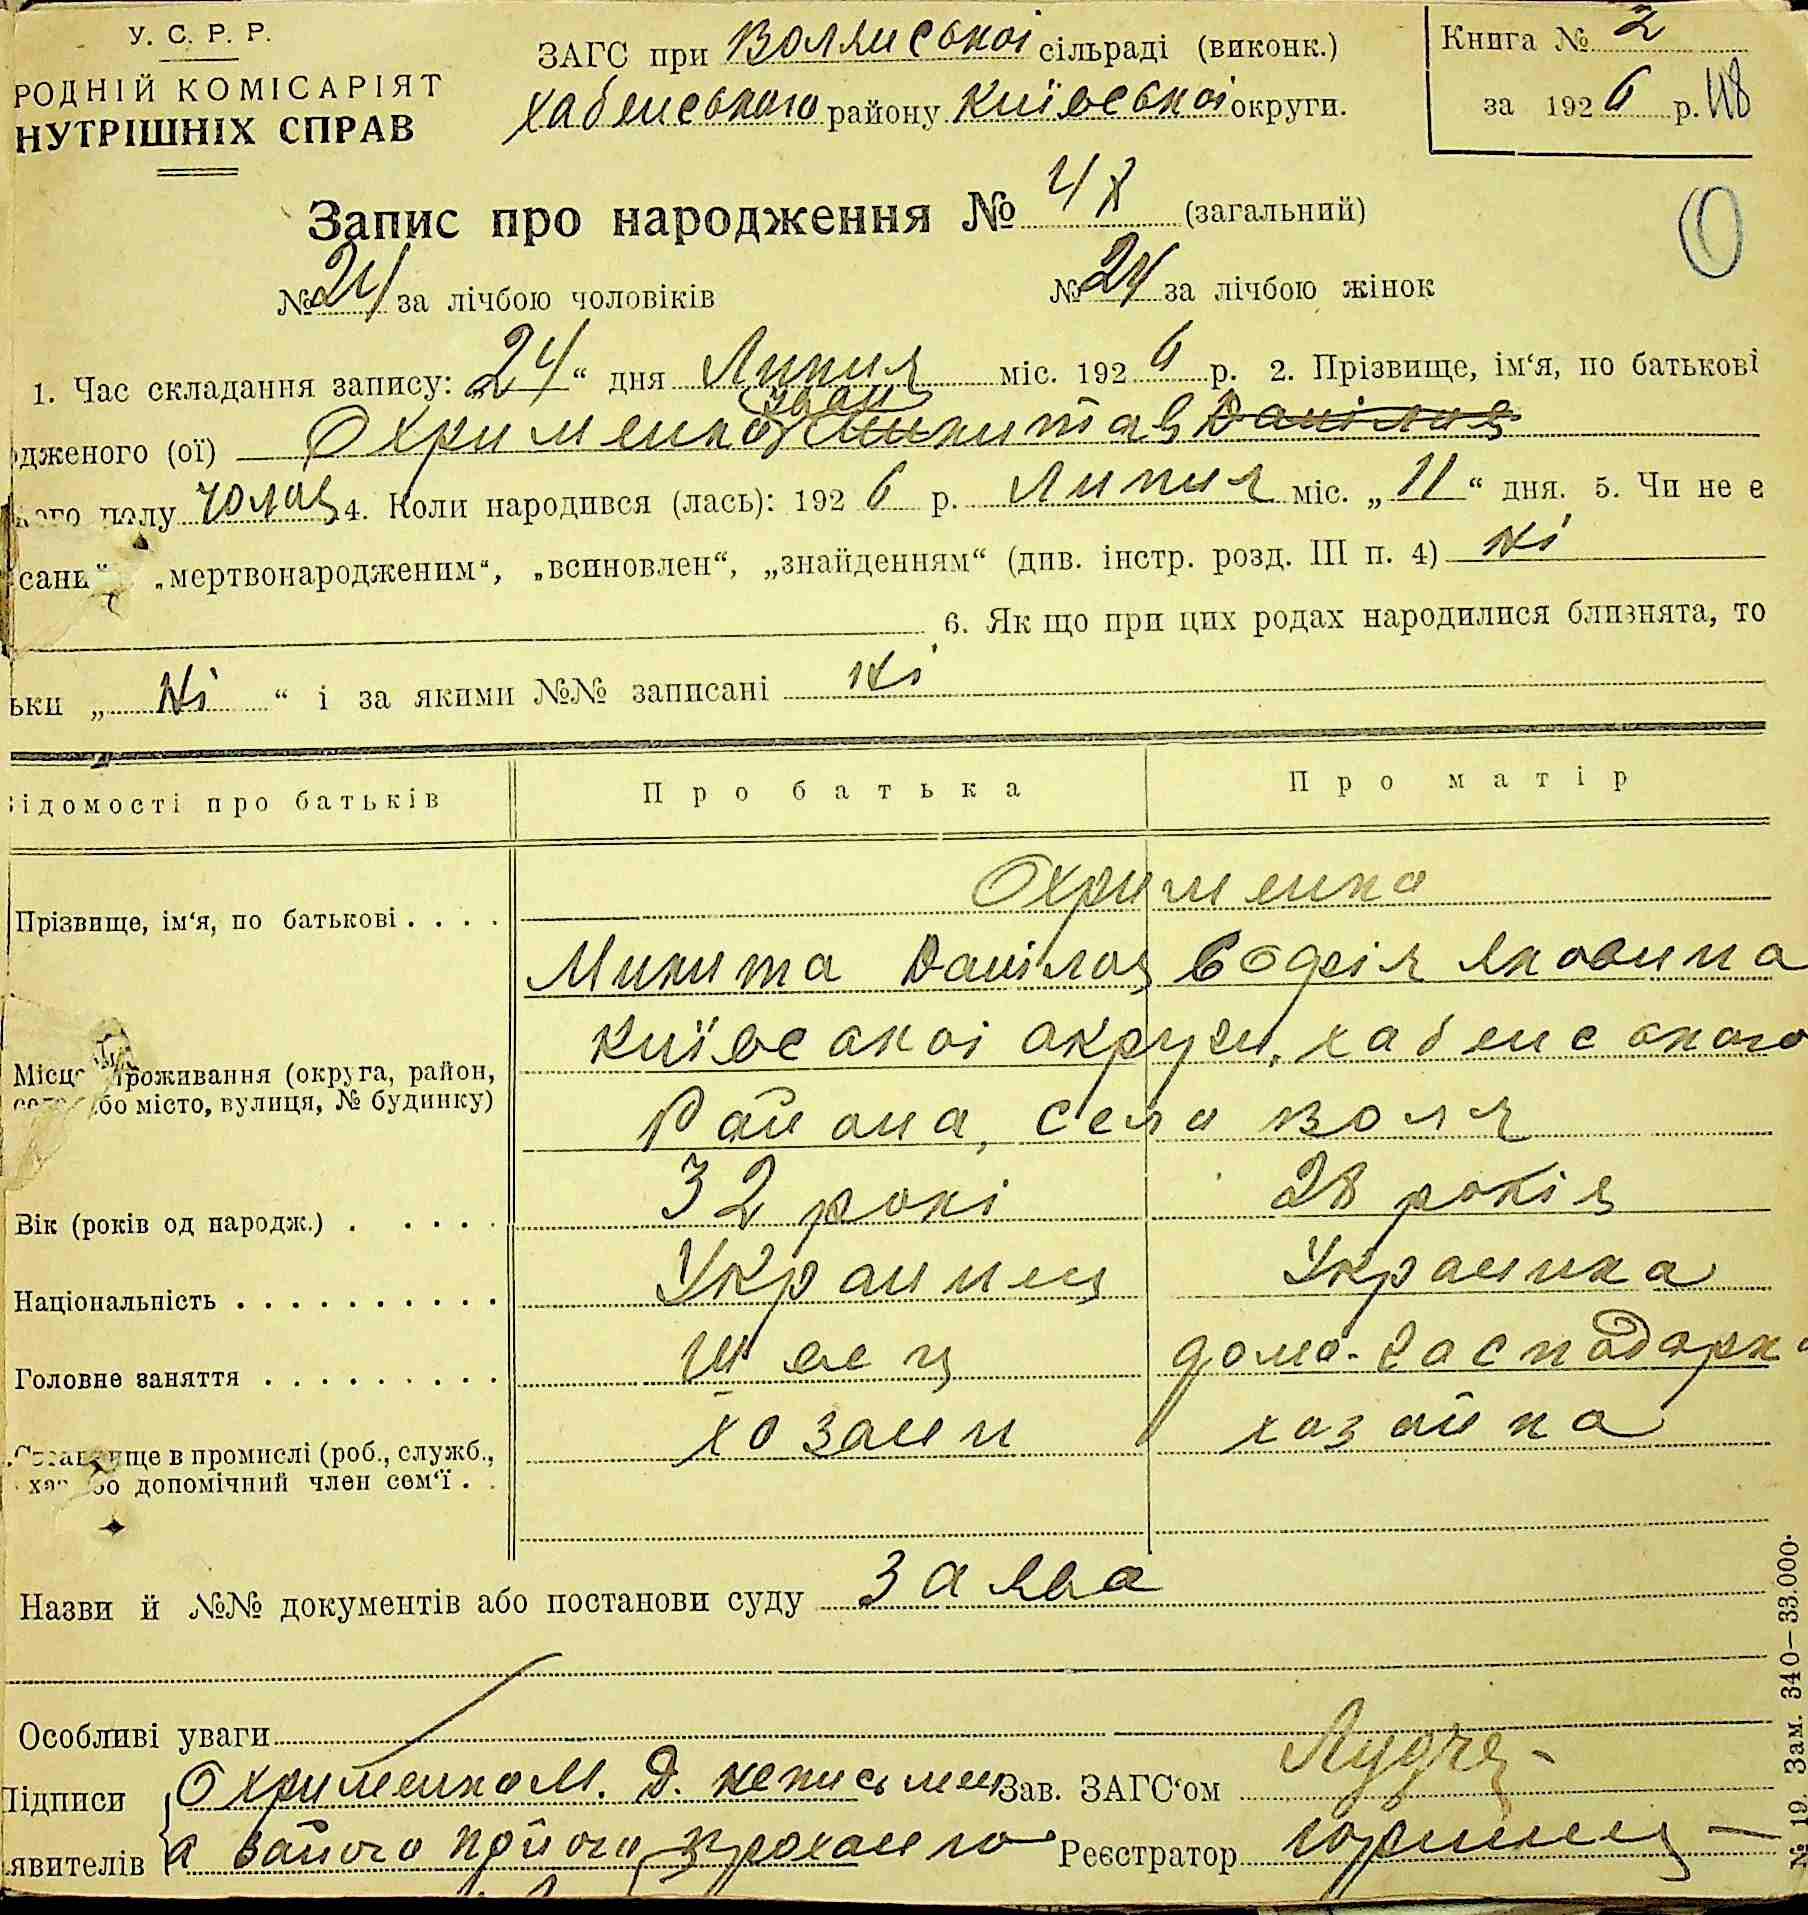 У. С. Р. Р.
РОДНІЙ КОМІСАРІЯТ
НУТРІШНІХ СПРАВ
ЗАГС при Волянської сільраді (виконк.)
хабенського району Київської округи.
Книга № 2
за 1926 р. 48
Запис про народження № 48 (загальний)
№ 24 за лічбою чоловіків № 24 за лічбою жінок
1. Час складання запису: „24“ дня Липня міс. 1926 р. 2. Прізвище, ім‘я, по батькові
Іван
дженого (ої) Охрименко Микитов Данілов
ого полу чолов 4. Коли народився (лась): 1926 р. Липня міс. „11“ дня. 5. Чи не є
сань“ „мертвонародженим“, „всиновлен“, „знайденням“ (див. інстр. розд. III п. 4) ні
6. Як що при цих родах народилися близнята, то
ьки „ ні “ і за якими №№ записані ні
ідомості про батьків Про батька Про матір
Прізвище, ім‘я, по батькові . . . . Охрименко
Микита Данілов Софія Яковина
Місце проживання (округа, район, Київської округи, хабенського
або місто, вулиця, № будинку) Района, село Воля
Вік (років од народж.) . . . . . 32 рокі 28 років
Національність . . . . . . . . . . Украинец Украинка
Головне заняття . . . . . . . . . швец домо-господарка
Становище в промислі (роб., служб., хозаин хозайка
допомічний член сем‘ї . .
Назви й №№ документів або постанови суду заява
Особливі уваги
Підписи Охрименко М. Д. неписьмен Зав. ЗАГС‘ом
явителів а зайого прохаию Реєстратор
№ 19. Зам. 340—33.000.